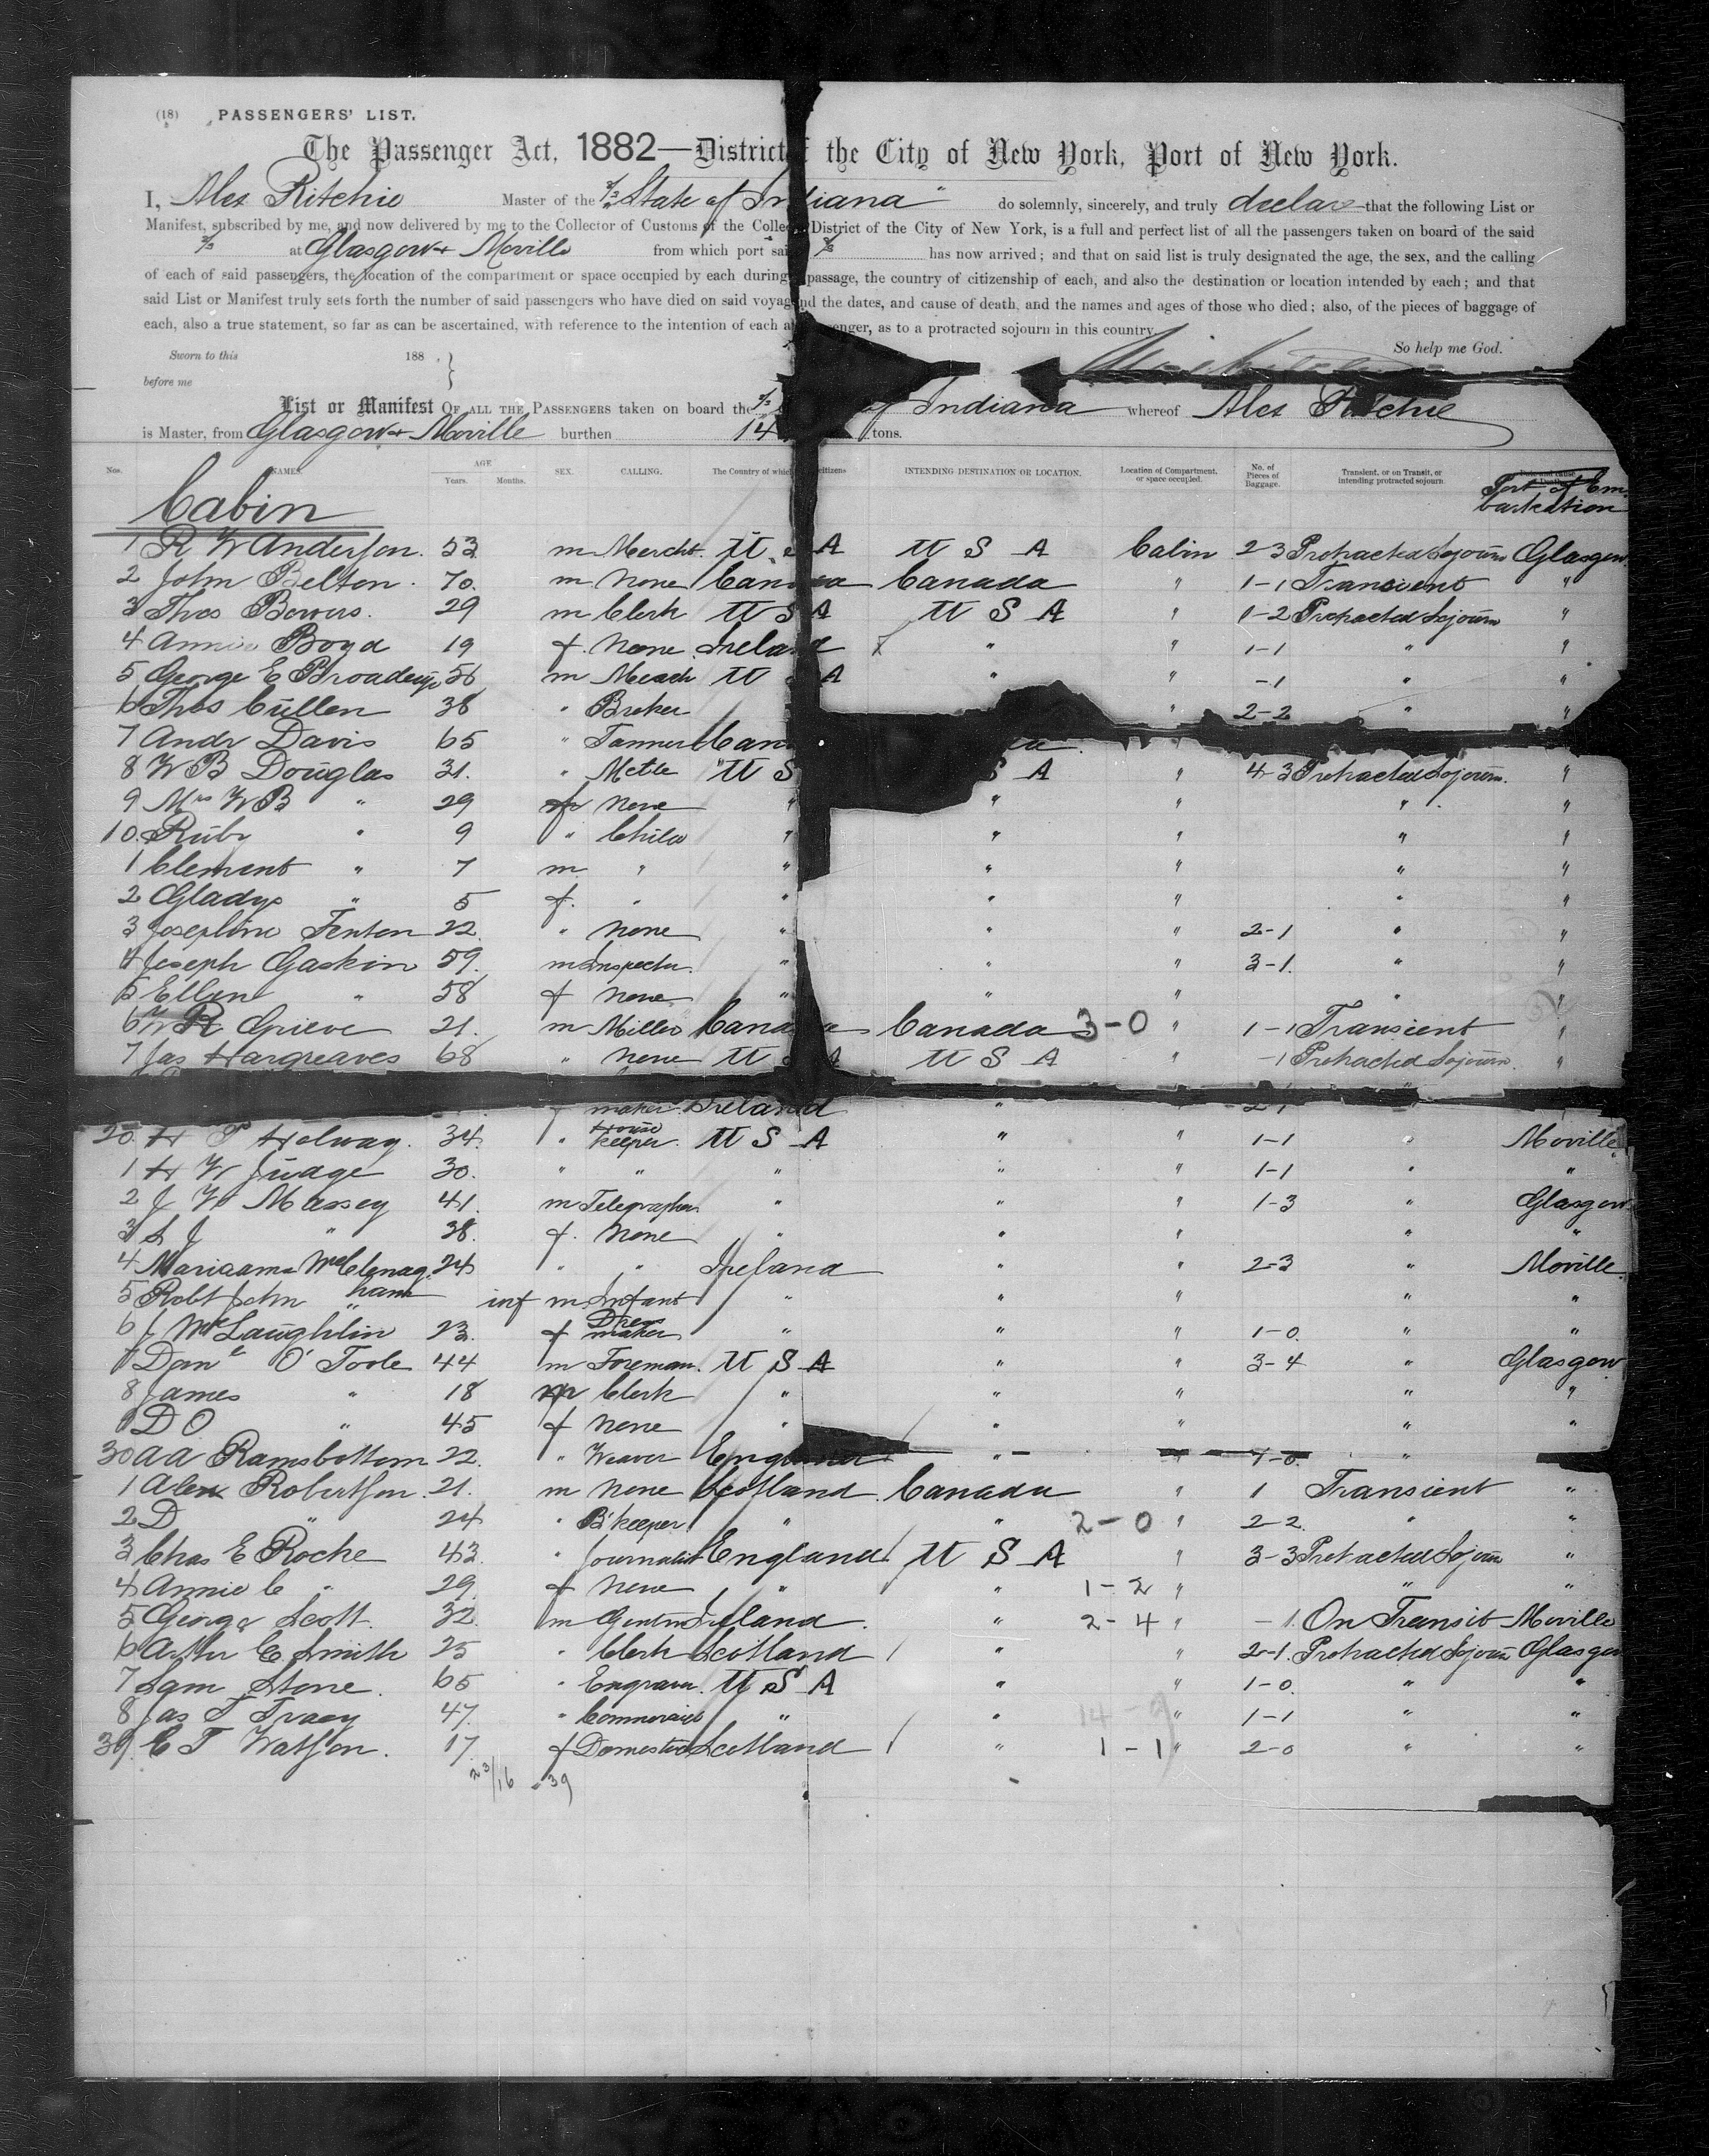 (18) PASSENGERS' LIST.
The Passenger Act, 1882—District of the City of New York, Port of New York.
I, Alex Ritchie Master of the S/S "State of Indiana" do solemnly, sincerely, and truly declare that the following List or
Manifest, subscribed by me, and now delivered by me to the Collector of Customs of the Collec District of the City of New York, is a full and perfect list of all the passengers taken on board of the said
S/S at Glasgow & Moville from which port sai S/S has now arrived; and that on said list is truly designated the age, the sex, and the calling
of each of said passengers, the location of the compartment or space occupied by each during passage, the country of citizenship of each, and also the destination or location intended by each; and that
said List or Manifest truly sets forth the number of said passengers who have died on said voyag nd the dates, and cause of death, and the names and ages of those who died; also, of the pieces of baggage of
each, also a true statement, so far as can be ascertained, with reference to the intention of each a enger, as to a protracted sojourn in this country.
So help me God.
Sworn to this 188
before me
List or Manifest OF ALL THE PASSENGERS taken on board the S/S of Indiana whereof Alex Ritchie
is Master, from Glasgow & Moville burthen 14 tons.
Nos. NAMES. AGE Years. Months. SEX. CALLING. The Country of which citizens INTENDING DESTINATION OR LOCATION. Location of Compartment, or space occupied. No. of Pieces of Baggage. Transient, or on Transit, or intending protracted sojourn Port of Embarkation
Cabin
1 R W Anderson. 53 m Mercht. U S A U S A Cabin 2-3 Protracted Sojourn Glasgow
2 John Belton. 70. m None Canada Canada " 1-1 Transient "
3 Thos Bowers. 29 m Clerk U S A U S A " 1-2 Protracted Sojourn "
4 Annie Boyd 19 f. None Ireland " " 1-1 " "
5 George E 56 m U S A " " -1 " "
6 Thos Cullen 38 " Broker " 2-2 " "
7 Andr Davis 65 " Tanner Can
8 W B Douglas 31. " U S S A " 4-3 Protracted Sojourn. "
9 Mrs W B " 29 f None " " " " "
10 Ruby " 9 " Child " " " " "
1 Clement " 7 m " " " " " "
2 Gladys " 5 f. " " " " " "
3 Josephine Fenton 22. " None " " " 2-1 " "
4 Joseph Gaskin 59. m Inspector. " " " 3-1. " "
5 Ellen " 58 f None " " " " "
6 W R Grieve 21. m Miller Canada Canada 3-0 " 1-1 Transient "
7 Jas Hargreaves 68 " None U S A U S A " -1 Protracted Sojourn. "
maker. Ireland "
20. H P Holway. 34. " House keeper. U S A " " 1-1 " Moville
1 H W Judge 30. " " " " " 1-1 " "
2 J W Massey 41. m Telegrapher " " " 1-3 " Glasgow
3 S J " 38. f. None " " " " "
4 McClenaghan 24 " " Ireland " " 2-3 " Moville
5 Robt John " inf m Infant " " " " "
6 J McLaughlin 23. f Dress maker " " " 1-0. " "
7 Danl O'Toole 44 m Foreman. U S A " " 3-4 " Glasgow
8 James " 18 m Clerk " " " " "
9 D O " 45 f None " " " " "
30 A A Ramsbottom 22. " Weaver England " " 1-0. "
1 Alex Robertson. 21. m None Scotland. Canada " 1 Transient "
2 D " 24 " B'keeper " " 2-0 " 2-2. " "
3 Chas E Roche 43. " Journalist England U S A " 3-3 Protracted Sojourn "
4 Annie C " 29. f None " " 1-2 " " "
5 George Scott. 32. m Ireland. " 2-4 " -1. On Transit Moville
6 Arthr C. Smith 25 " Clerk Scotland / " " 2-1. Protracted Sojourn Glasgow
7 Sam Stone. 65 " Engraver. U S A " " 1-0. " "
8 Jas T Tracy 47. " Commercial " " 14-9 " 1-1 " "
39. C T Watson. 17. f Domestic Scotland / " 1-1 " 2-0 " "
23/16 = 39